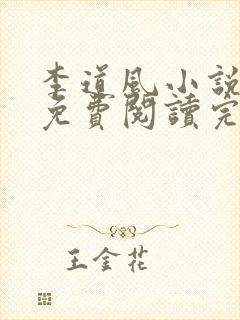 李道風小說
免費閱讀完
王金花